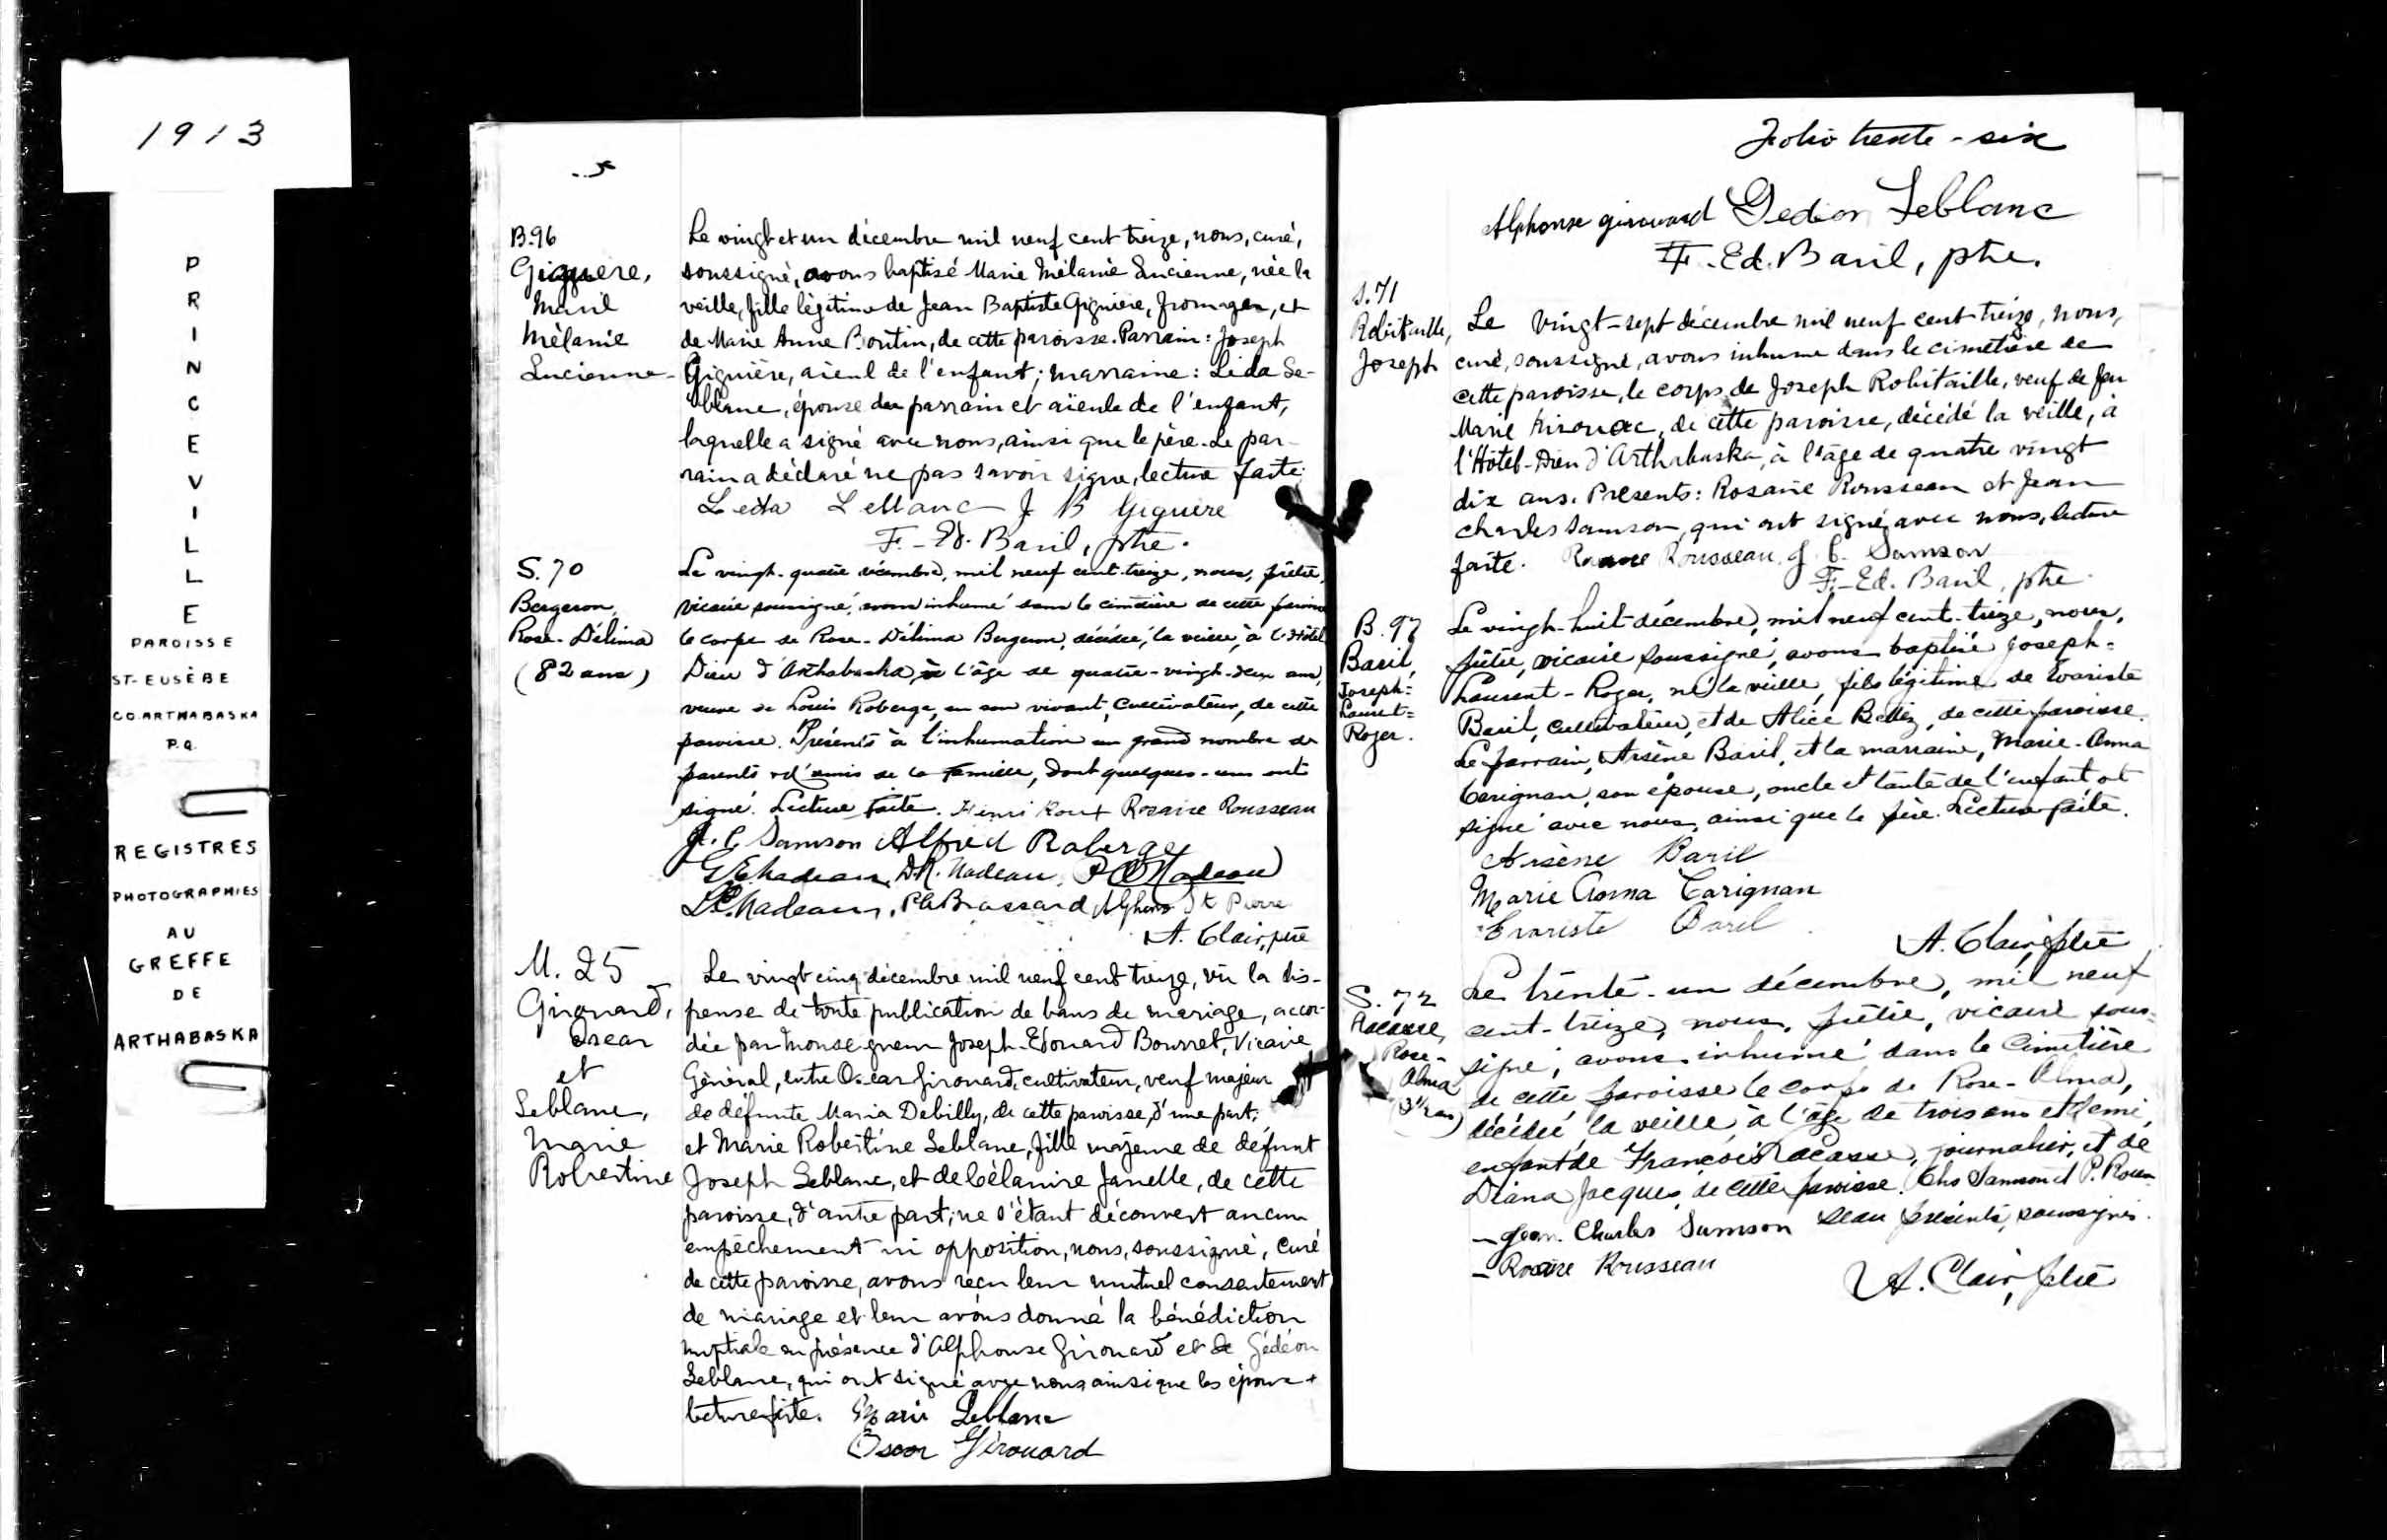 1913
PRINCEVILLE
PAROISSE
ST-EUSÈBE
CO. ARTHABASKA
P.Q.
REGISTRES
PHOTOGRAPHIES
AU
GREFFE
DE
ARTHABASKA
B.96
Giguère,
Marie
Mélanie
Lucienne
Le vingt et un décembre mil neuf cent treize, nous, curé,
soussigné, avons baptisé Marie Mélanie Lucienne, née la
veille, fille légitime de Jean Baptiste Giguière, fromager, et
de Marie Anne Boutin, de cette paroisse. Parrain: Joseph
Giguière, aïeul de l'enfant; marraine: Léda Le-
blanc, épouse du parrain et aïeule de l'enfant,
laquelle a signé avec nous, ainsi que le père. Le par-
rain a déclaré ne pas savoir signer, lecture faite.
Leda Leblanc J B Giguère
F.-Ed. Baril, ptre.
S. 70
Bergeron,
Rose-Délima
(82 ans)
Le vingt-quatre décembre, mil neuf cent-treize, nous, prêtre,
vicaire soussigné, avons inhumé dans le cimetière de cette paroisse
le corps de Rose-Délima Bergeron, décédée, la veille, à l'Hôtel
Dieu d'Arthabaska, à l'âge de quatre-vingt-deux ans,
veuve de Louis Roberge, en son vivant, cultivateur, de cette
paroisse. Présents à l'inhumation un grand nombre de
parents et d'amis de la famille, dont quelques-uns ont
signé. Lecture faite. Henri Roux Rosaire Rousseau
J. C. Samson Alfred Roberge
Nadeau, D.R. Nadeau, Nadeau
Nadeau, Brassard, Alphonse St Pierre
A. Clair, ptre
M. 25
Girouard,
Oscar
et
Leblanc,
Marie
Robertine
Le vingt cinq décembre mil neuf cent treize, vu la dis-
pense de toute publication de bans de mariage, accor-
dée par Monseigneur Joseph-Edouard Bourret, Vicaire
Général, entre Oscar Girouard, cultivateur, veuf majeur
de défunte Maria Debilly, de cette paroisse, d'une part;
et Marie Robertine Leblanc, fille majeure de défunt
Joseph Leblanc, et de Célanire Janelle, de cette
paroisse, d'autre part; ne s'étant découvert aucun
empêchement ni opposition, nous, soussigné, curé
de cette paroisse, avons reçu leur mutuel consentement
de mariage et leur avons donné la bénédiction
nuptiale en présence d'Alphonse Girouard et de Gédéon
Leblanc, qui ont signé avec nous ainsi que les époux
lecture faite. Marie Leblanc
Oscar Girouard
Folio trente-six
Alphonse girouard Gedeon Leblanc
F.-Ed. Baril, ptre.
S. 71
Robitaille,
Joseph
Le vingt-sept décembre mil neuf cent treize, nous,
curé, soussigné, avons inhumé dans le cimetière de
cette paroisse, le corps de Joseph Robitaille, veuf de feu
Marie Kirouac, de cette paroisse, décédé la veille, à
l'Hôtel-Dieu d'Arthabaska, à l'âge de quatre vingt
dix ans. Présents: Rosaire Rousseau et Jean
Charles Samson, qui ont signé avec nous, lecture
faite. Rosaire Rousseau J. C. Samson
F.-Ed. Baril, ptre.
B. 97
Baril,
Joseph=
Laurent=
Roger.
Le vingt-huit décembre, mil neuf cent-treize, nous,
prêtre, vicaire soussigné, avons baptisé Joseph=
Laurent-Roger, né la veille, fils légitime de Evariste
Baril, cultivateur, et de Alice Bettez, de cette paroisse.
Le parrain, Arsène Baril, et la marraine, Marie-Anna
Carignan, son épouse, oncle et tante de l'enfant, ont
signé avec nous, ainsi que le père. Lecture faite.
Arsène Baril
Marie Anna Carignan
Evariste Baril
A. Clair, ptre
S. 72
Lacasse,
Rose-
Alma
(3½ ans)
Le trente-un décembre, mil neuf
cent-treize, nous, prêtre, vicaire sous=
signé, avons inhumé dans le cimetière
de cette paroisse le corps de Rose-Alma,
décédée, la veille, à l'âge de trois ans et demi,
enfant de François Lacasse, journalier, et de
Diana Jacques, de cette paroisse. Chs Samson et P. Rous-
seau présents, soussignés.
- Jean. Charles Samson
- Rosaire Rousseau
A. Clair, ptre